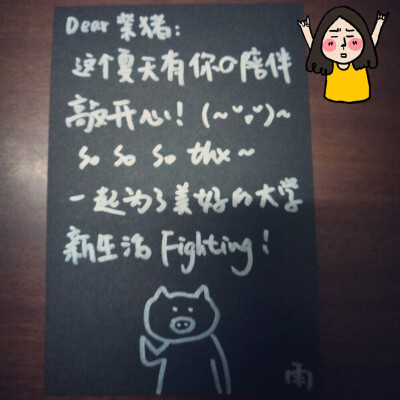 Dear 荣猪:
这个夏天有你の陪伴
敲开心! (~˘▾˘)~
so so so thx~
一起为了美好的大学
新生活 Fighting!
雨